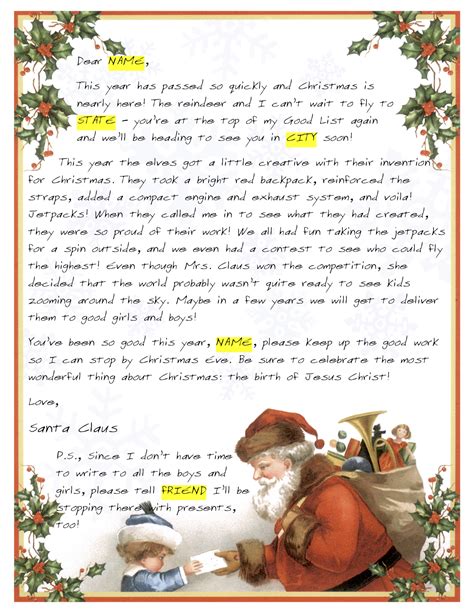 Dear NAME,
This year has passed so quickly and Christmas is
nearly here! The reindeer and I can't wait to fly to
STATE - you're at the top of my Good List again
and we'll be heading to see you in CITY soon!
This year the elves got a little creative with their invention
for Christmas. They took a bright red backpack, reinforced the
straps, added a compact engine and exhaust system, and voila!
Jetpacks! When they called me in to see what they had created,
they were so proud of their work! We all had fun taking the jetpacks
for a spin outside, and we even had a contest to see who could fly
the highest! Even though Mrs. Claus won the competition, she
decided that the world probably wasn't quite ready to see kids
zooming around the sky. Maybe in a few years we will get to deliver
them to good girls and boys!
You've been so good this year, NAME, please keep up the good work
so I can stop by Christmas Eve. Be sure to celebrate the most
wonderful thing about Christmas: the birth of Jesus Christ!
Love,
Santa Claus
P.S., Since I don't have time
to write to all the boys and
girls, please tell FRIEND I'll be
stopping there with presents,
too!